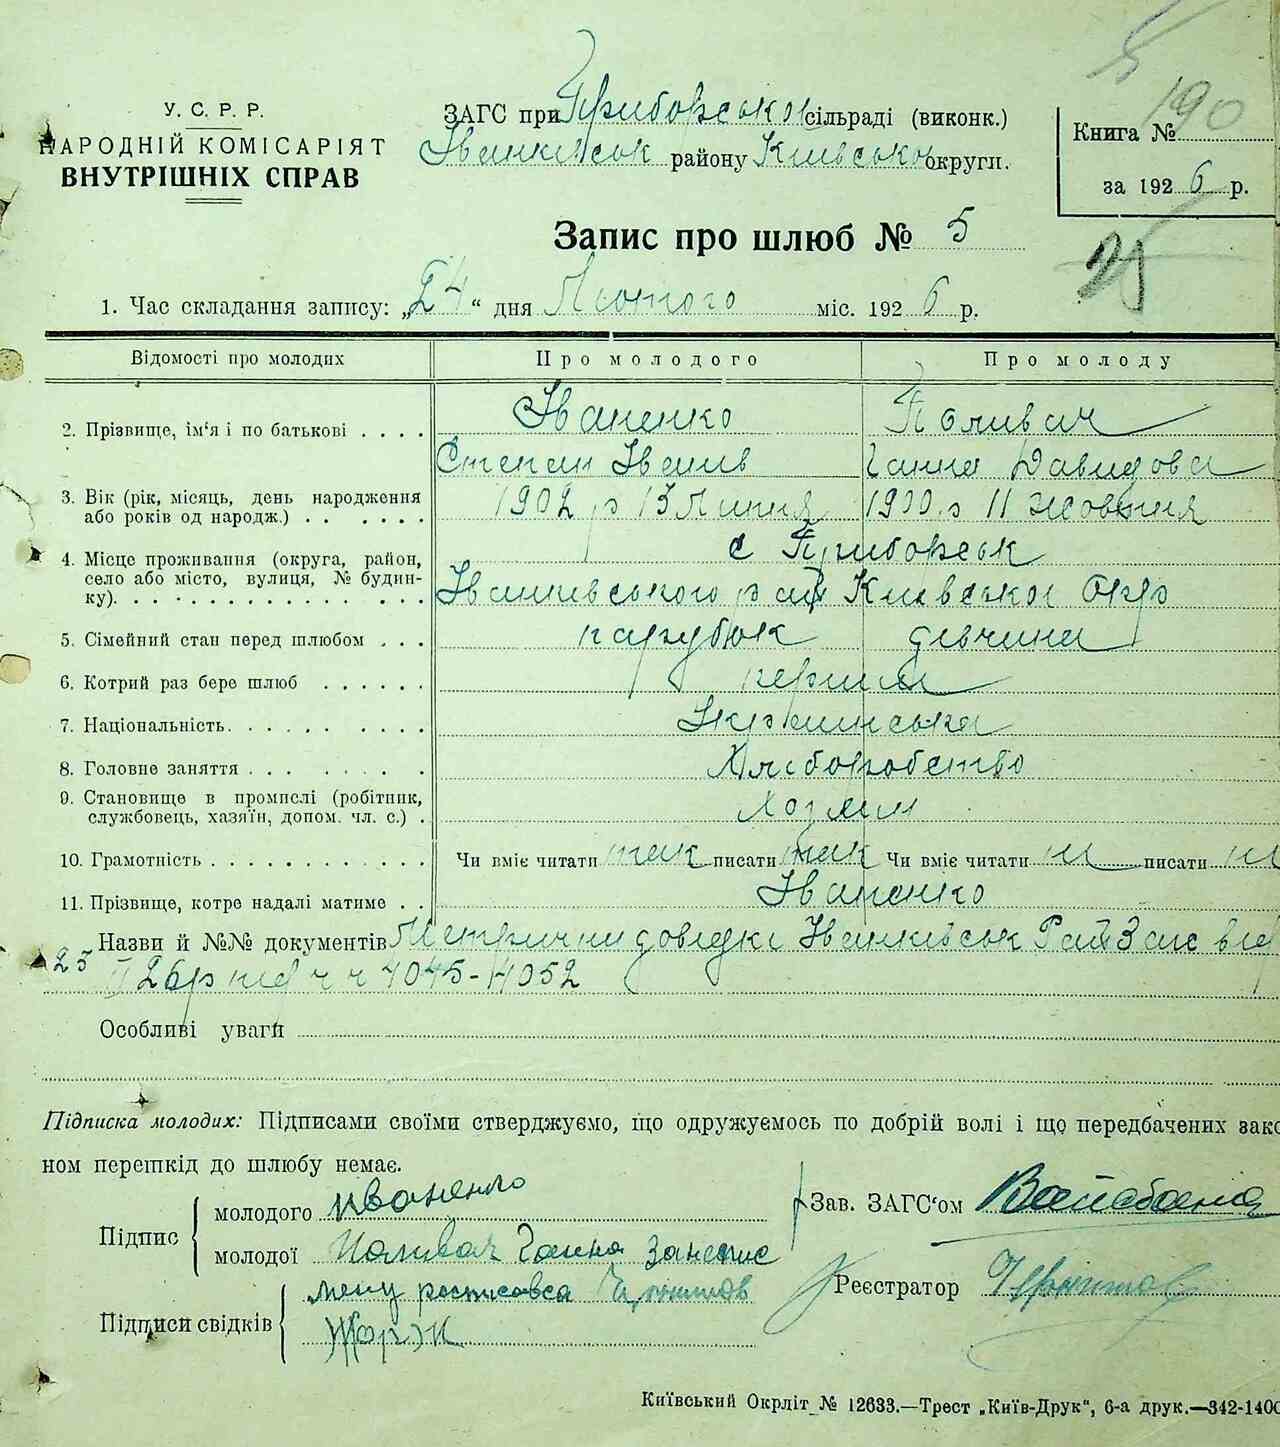 190
У. С. Р. Р.
НАРОДНІЙ КОМІСАРІЯТ
ВНУТРІШНІХ СПРАВ
ЗАГС при Приборській сільраді (виконк.)
Іванківськ району Київської округи.
Книга №
за 1926 р.
Запис про шлюб № 5
25
1. Час складання запису: „24“ дня Лютого міс. 1926 р.
Відомості про молодих Про молодого Про молоду
2. Прізвище, ім‘я і по батькові . . . . Іваненко Поливач
Степан Іванів Ганна Давидова
3. Вік (рік, місяць, день народження або років од народж.) . . . . . . 1902 р 15 Липня 1900 р 11 жовтня
4. Місце проживання (округа, район, село або місто, вулиця, № будинку). с Приборськ
Іванківського рай Київської Окр
5. Сімейний стан перед шлюбом . . . парубок дівчина
6. Котрий раз бере шлюб . . . . . . перший
7. Національність. Українська
8. Головне заняття . . . . . . . . Хліборобство
9. Становище в промислі (робітник, службовець, хазяїн, допом. чл. с.) . Хозяїн
10. Грамотність Чи вміє читати так писати так Чи вміє читати ні писати ні
11. Прізвище, котре надалі матиме . . Іваненко
Назви й №№ документів Метричні довідки Іванківськ Рай Загс від
25/II 26 р під ч ч 4045-4052
Особливі уваги
Підписка молодих: Підписами своїми стверджуємо, що одружуємось по добрій волі і що передбачених зако
ном перешкід до шлюбу немає.
Підпис
молодого Иваненко
молодої Поливач Ганна
Зав. ЗАГС‘ом
Підписи свідків
Реєстратор
Київський Окрліт № 12633.—Трест „Київ-Друк“, 6-а друк.—342-1400